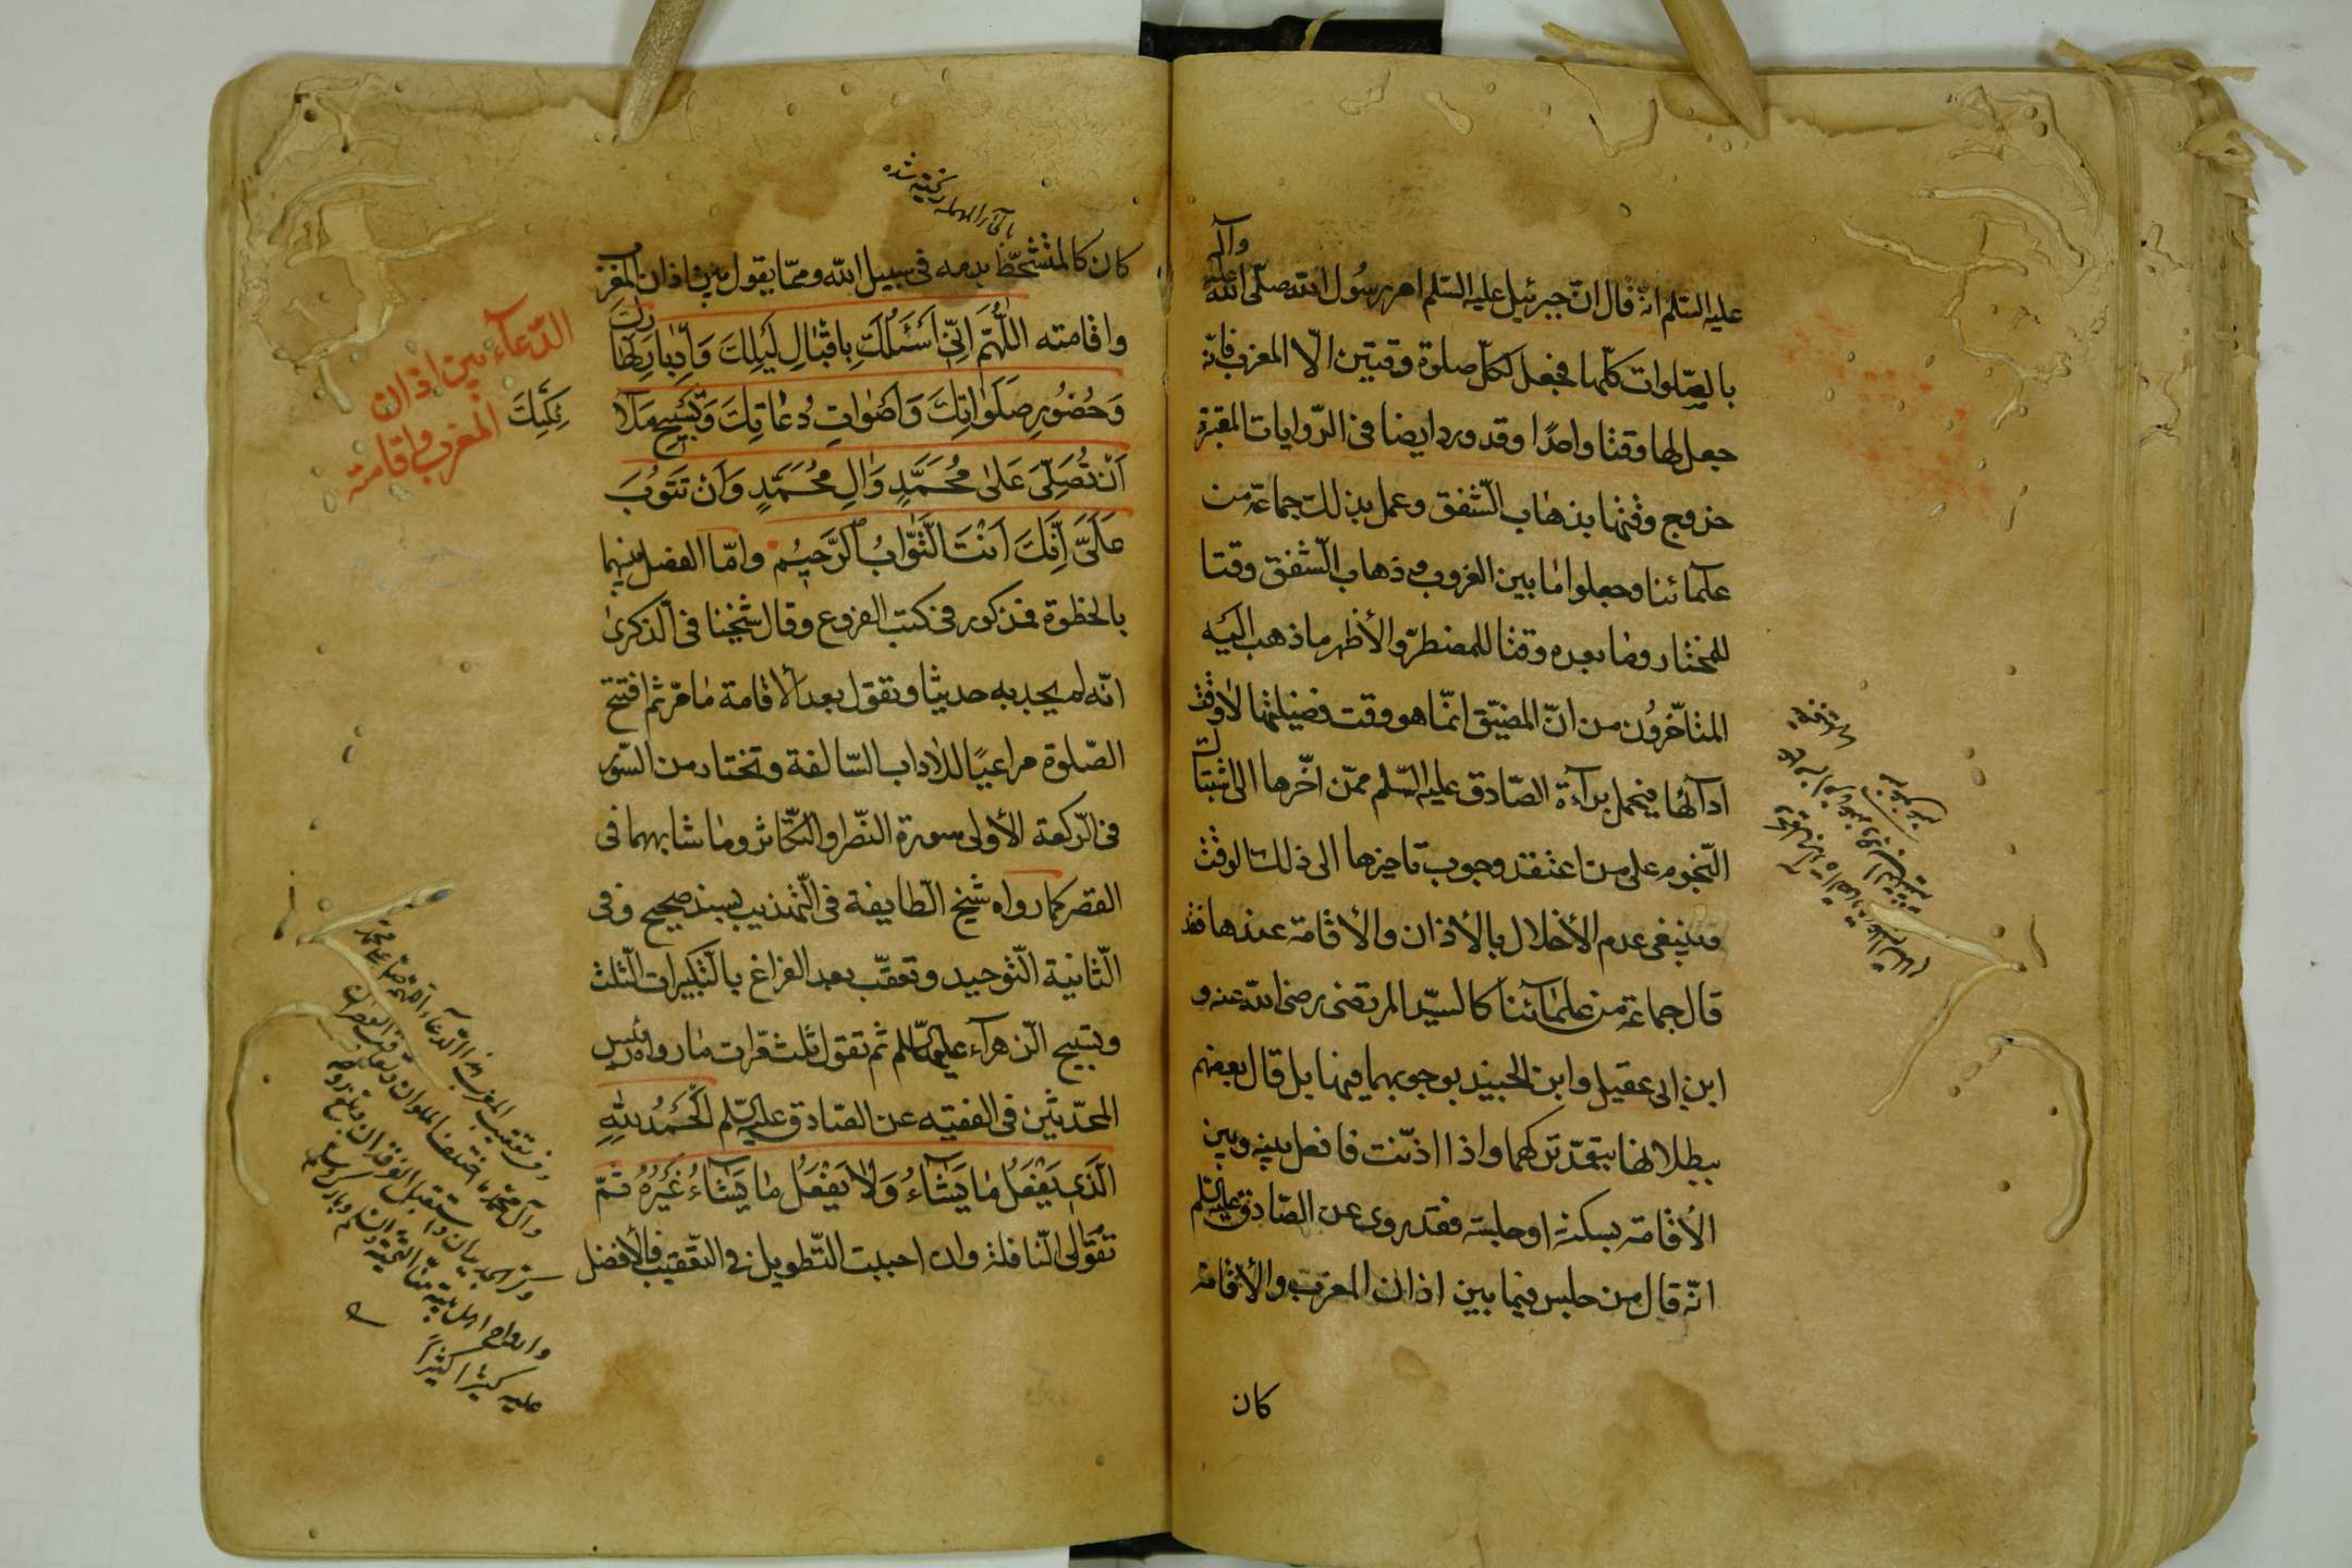 عليه السّلم انّه قال انّ جبرئيل عليه السّلم امر رسُول الله صلّى الله عليه وآله
بالصّلوات كلّها فجعل لكلّ صلوة وقتين الّا المغرب فانّه
جعل لها وقتا واحدًا وقد ورد ايضا فى الرّوايات المعتبرة
خروج وقتها بذهاب الشّفق وعمل بذلك جماعة من
علمآئنا وجعلوا ما بين الغروب وذهاب الشّفق وقتا
للمختار وما بعده وقتا للمضطرّ والأظهر ما ذهب اليه
المتاخّرون من انّ المضيّق انّما هو وقت فضيلتها لا وقت
ادآئها فيحمل برآءة الصّادق عليه السّلم ممّن اخّرها الى اشتباك
النّجوم على من اعتقد وجوب تاخيرها الى ذلك الوقت
وينبغى عدم الأخلال بالأذان والأقامة عندها فقد
قال جماعة من علمآئنا كالسيّد المرتضى رضى الله عنه و
ابن ابى عقيل وابن الجنيد بوجوبهما فيها بل قال بعضهم
ببطلانها بتعمّد تركهما واذا اذّنت فافصل بينه وبين
الأقامة بسكتة او جلسة فقد روى عن الصّادق عليه السّلم
انّه قال من جلس فيما بين اذان المغرب والأقامة
كان
بالحآء المهملة
كان كالمتشحّط بدمه فى سبيل الله وممّا يقول بين اذان المغرب
واقامته اللّٰهُمَّ اِنّى اَسْئَلُكَ بِاِقْبٰالِ لَيْلِكَ وَاِدْبٰارِ نَهٰارِكَ
وَحُضُورِ صَلَوٰاتِكَ وَاَصْوٰاتِ دُعٰاتِكَ وَتَسْبيحِ مَلٰا
ئِكَتِكَ
اَنْ تُصَلِّىَ عَلىٰ مُحَمَّدٍ وَاٰلِ مُحَمَّدٍ وَاَنْ تَتُوبَ
عَلَىَّ اِنَّكَ اَنْتَ التَّوّٰابُ الرَّحيمُ وامّا الفصل بينهما
بالخطوة فمذكور فى كتب الفروع وقال شيخنا فى الذّكرى
انّه لم يجد به حديثا وتقول بعد الأقامة ما مرّ ثم افتتح
الصّلوة مراعيًا للاٰداب السّالفة وتختار من السّور
فى الرّكعة الأولى سورة النّصر والتّكاثر وما شابههما فى
القصر كما رواه شيخ الطّايفة فى التّهذيب بسند صحيح وفى
الثّانية التّوحيد وتعقّب بعد الفراغ بالتّكبيرات الثّلث
وتسبيح الزّهرآء عليها السّلم ثم تقول ثلث مّرات ما رواه رئيس
المحدّثين فى الفقيه عن الصّادق عليه السّلم اَلْحَمْدُ لِلّٰهِ
الَّذى يَفْعَلُ مٰا يَشٰآءُ وَلٰا يَفْعَلُ مٰا يَشٰآءُ غَيْرُهُ ثمّ
تقوم الى النّافلة وان احببت التّطويل فى التّعقيب فالأفضل
الدّعآء بين اذان
المغرب واقامته
وآل محمّد ما اختلف الملوان
وارواح اهل بيته
عليه كثيرا كثيرًا